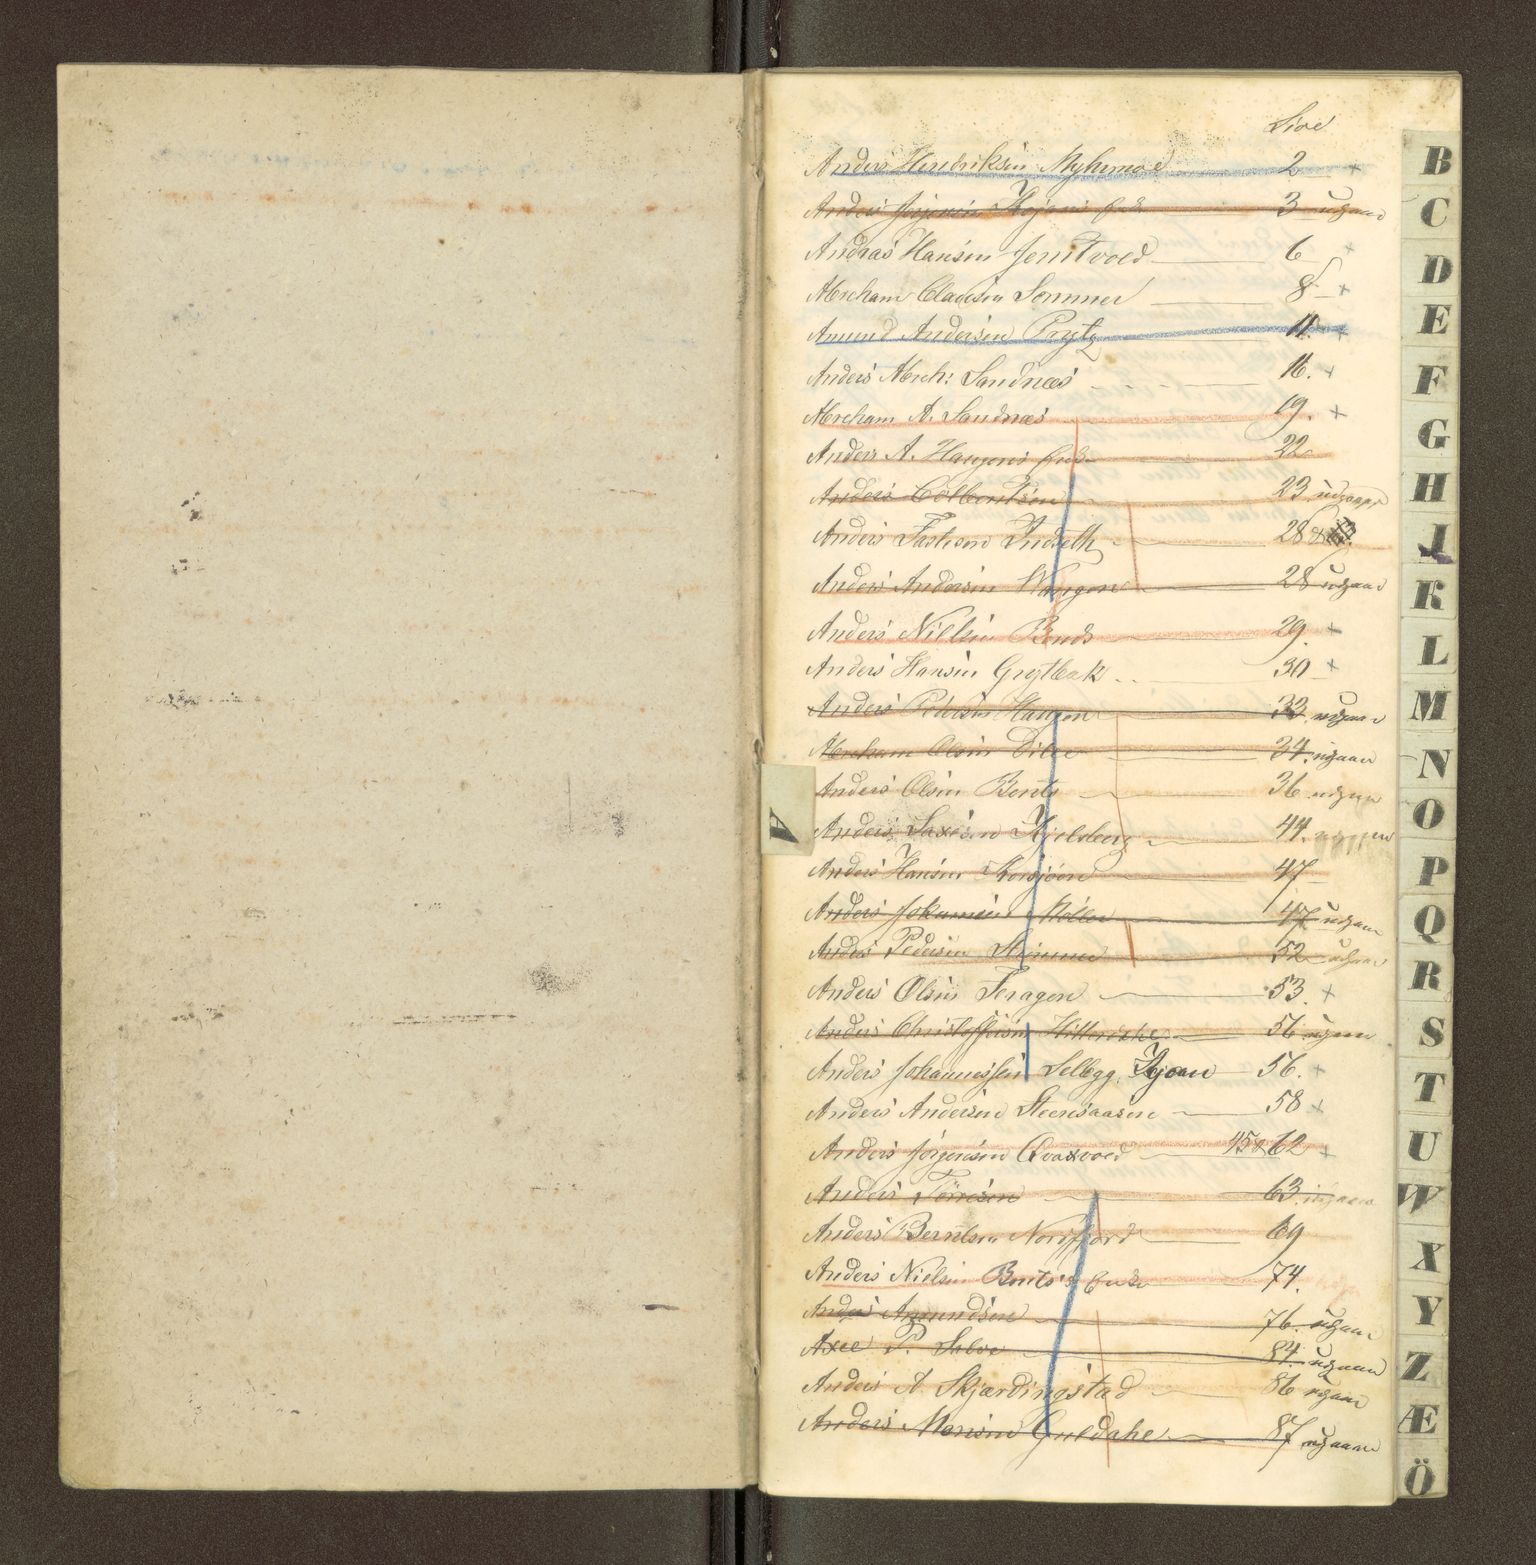 Side
Anders Hendriksen Myhrmoe 2 +
Anders Jørgensen Enke 3 udgaar
Andras Hansen Jemtvold 6 +
Abraham Claussen Sommer 8 +
Amund Andersen Prytz 11. +
Anders Abrah: Sandnæs 16. +
Abraham A. Sandnæs 19. +
Anders A. Haugens Enke 22
Anders Colbentsen 23 udgaar
Anders Indseth 28 &
Anders Andersen Haugen 28 udgaar
Anders Nielsen Bends 29. +
Anders Hansen Grytbak 30 +
Anders Pedersen Haugen 33. udgaar
Abraham Olsen 34. udgaar
Anders Olsen Bents 36 udgaar
Anders Saxesen Kjelsberg 44.
Anders Hansen Korsjøen 47
Anders Johannesen Møller 47 udgaar
Anders Pedersen 52 udgaar
Anders Olsen Feragen 53. +
Anders Christoffersen Hitterdahl 56 udgaar
Anders Johannessen Sellegg, 56. +
Anders Andersen Steensaasen 58 +
Anders Jørgensen 45 & 62 +
Anders Tørresen 63. udgaar
Anders Berntsen Nordfjord 69
Anders Nielsen Bents's Enke 74.
Anders Amundsen 76. udgaar
Axel P. 84. udgaar
Anders A. Skjærdingstad 86 udgaar
Anders Monsen Guldahl 87 udgaar
A
B
C
D
E
F
G
H
J
K
L
M
N
O
P
Q
R
S
T
U
W
X
Y
Z
Æ
Ö